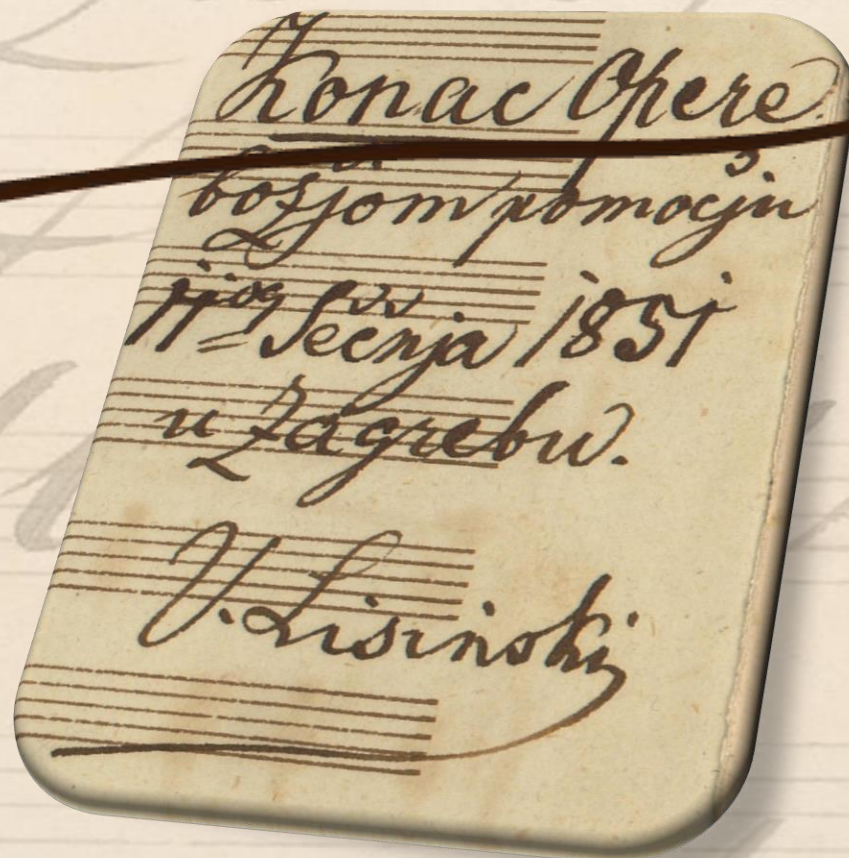 Konac Opere.
božjom pomoćju
11og Sěčnja 1851
u Zagrebu.
V. Lisinski